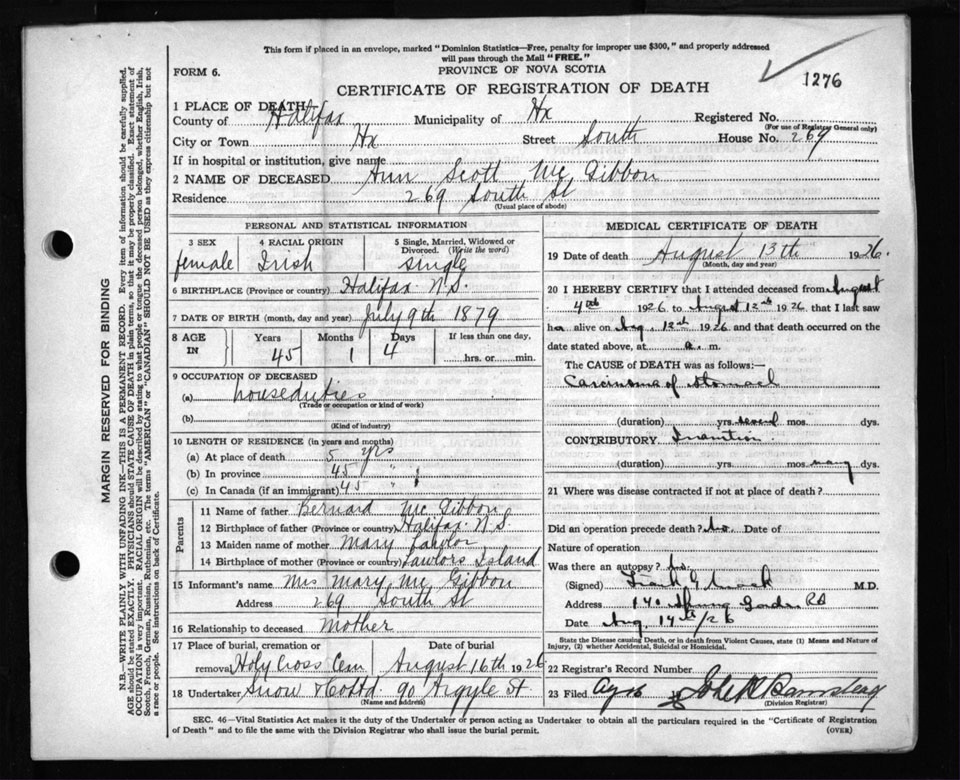 This form if placed in an envelope, marked "Dominion Statistics—Free, penalty for improper use $300," and properly addressed
will pass through the Mail "FREE."
PROVINCE OF NOVA SCOTIA
FORM 6.
CERTIFICATE OF REGISTRATION OF DEATH
1276
1 PLACE OF DEATH—
County of Halifax Municipality of Hx Registered No.
(For use of Registrar General only)
City or Town Hx Street South House No. 269
If in hospital or institution, give name
2 NAME OF DECEASED Ann Scott Mc Gibbon
Residence 269 South St
(Usual place of abode)
PERSONAL AND STATISTICAL INFORMATION
3 SEX 4 RACIAL ORIGIN 5 Single, Married, Widowed or
Divorced. (Write the word)
female Irish single
6 BIRTHPLACE (Province or country) Halifax N.S.
7 DATE OF BIRTH (month, day and year) July 9th 1879
8 AGE IN Years Months Days If less than one day,
45 1 4 hrs. or min.
9 OCCUPATION OF DECEASED
(a) houseduties
(Trade or occupation or kind of work)
(b)
(Kind of industry)
10 LENGTH OF RESIDENCE (in years and months)
(a) At place of death 5 yrs
(b) In province 45 "
(c) In Canada (if an immigrant) 45 "
Parents
11 Name of father Bernard Mc Gibbon
12 Birthplace of father (Province or country) Halifax N.S.
13 Maiden name of mother Mary Lawlor
14 Birthplace of mother (Province or country) Lawlors Island
15 Informant's name Mrs Mary Mc Gibbon
Address 269 South St
16 Relationship to deceased Mother
17 Place of burial, cremation or Date of burial
removal Holy Cross Cem August 16th 1926
18 Undertaker Snow & Co Ltd. 90 Argyle St.
(Name and address)
MEDICAL CERTIFICATE OF DEATH
19 Date of death August 13th 1926.
(Month, day and year)
20 I HEREBY CERTIFY that I attended deceased from August
4th 1926 to August 12th 1926 that I last saw
her alive on Aug. 12th 1926 and that death occurred on the
date stated above, at a. m.
The CAUSE OF DEATH was as follows:—
Carcinoma of stomach
(duration) yrs. several mos. dys.
CONTRIBUTORY Inanition
(duration) yrs. mos. many dys.
21 Where was disease contracted if not at place of death?
Did an operation precede death? No. Date of
Nature of operation
Was there an autopsy? No.
(Signed) Frank G. Mack M.D.
Address 140 Spring Garden Rd
Date Aug. 14th/26
State the Disease causing Death, or in death from Violent Causes, state (1) Means and Nature of
Injury, (2) whether Accidental, Suicidal or Homicidal.
22 Registrar's Record Number
23 Filed
(Division Registrar)
SEC. 46—Vital Statistics Act makes it the duty of the Undertaker or person acting as Undertaker to obtain all the particulars required in the "Certificate of Registration
of Death" and to file the same with the Division Registrar who shall issue the burial permit. (OVER)
MARGIN RESERVED FOR BINDING
N.B.—WRITE PLAINLY WITH UNFADING INK—THIS IS A PERMANENT RECORD. Every item of information should be carefully supplied.
AGE should be stated EXACTLY. PHYSICIANS should STATE CAUSE OF DEATH in plain terms, so that it may be properly classified. Exact statement of
OCCUPATION is very important. RACIAL ORIGIN will be described by stating to what people or tongue the deceased person belonged, whether English, Irish,
Scotch, French, German, Russian, Ruthenian, etc. The terms "AMERICAN" or "CANADIAN" SHOULD NOT BE USED as they express citizenship but not
a race or people. See instructions on back of Certificate.